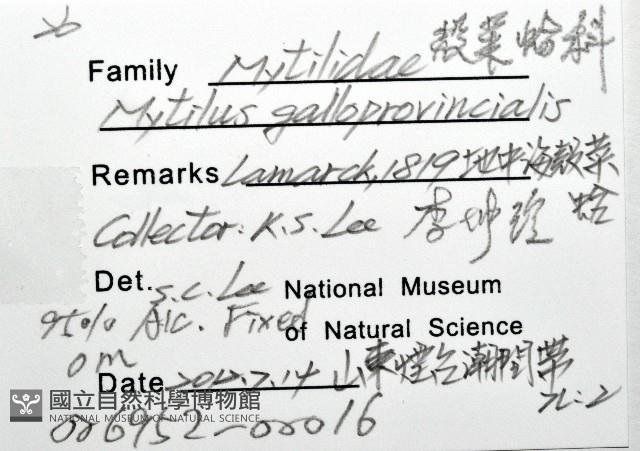 Family Mytilidae 殼菜蛤科
Mytilus galloprovincialis
Remarks Lamarck, 1819 地中海殼菜蛤
Collector: K.S. Lee 李坤瑄
Det. S.C. Lee National Museum
95% Alc. Fixed of Natural Science
0m
Date 2012.7.14 山東煙台潮間帶
國立自然科學博物館
NATIONAL MUSEUM OF NATURAL SCIENCE
006952-00016